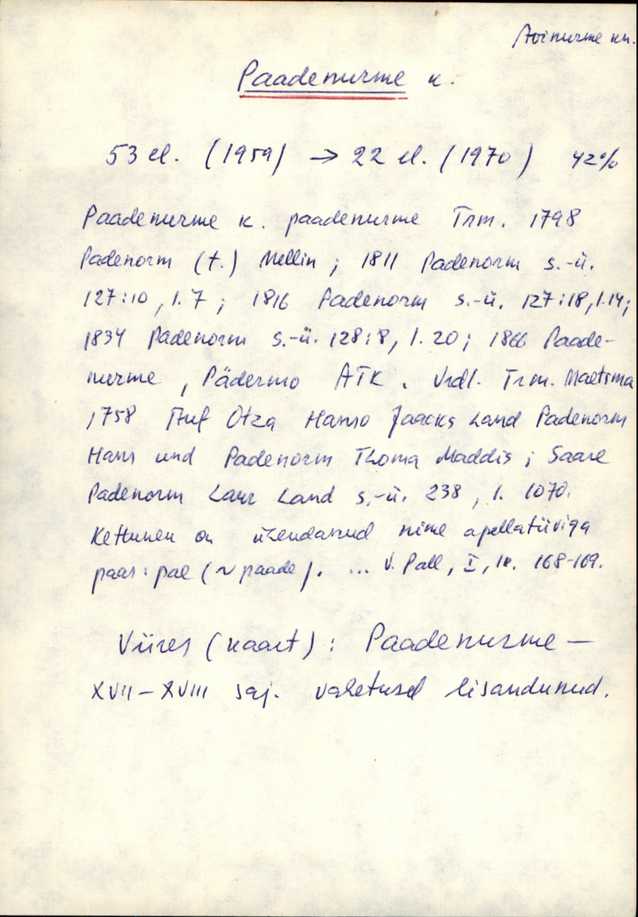 Avinurme kn.
Paadenurme k.
53 el. (1959) → 22 el. (1970) 42%
Paadenurme k. paadenurme Trm. 1798
Padenorm (t.) Mellin; 1811 Padenorm s.-ü.
127:10, l. 7; 1816 Padenorm s.-ü. 127:18, l.14;
1834 Padenorm s.-ü. 128:8, l. 20; 1866 Paade-
nurme, Pädermo ATK. Vrdl. Trm. Maetsma
1758 Auf Otza Hanso Jaacks Land Padenorm
Hans und Padenorm Thoma Maddis; Saare
Padenorm Laur Land s.-ü. 238, l. 1070.
Kettunen on ühendanud nime apellatiiviga
paas : pae (~ paade). ... V. Pall, I, lk. 168-169.
Viires (kaart): Paadenurme —
XVII – XVIII saj. vahetusel lisandunud.